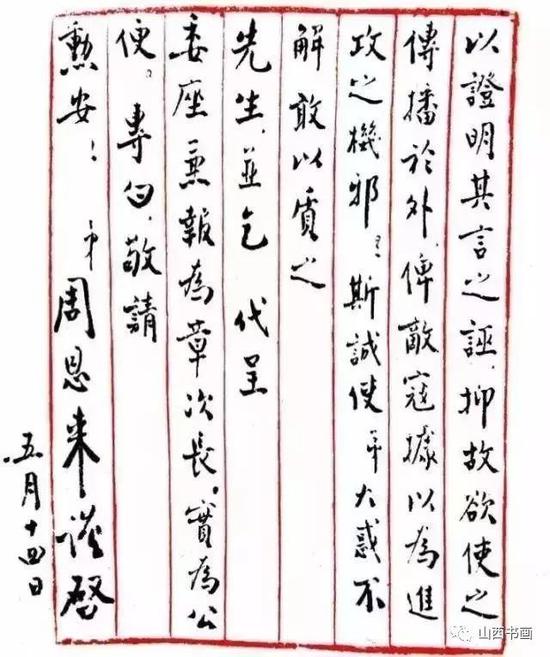 以證明其言之誣、抑故欲使之
傳播於外、俾敵寇據以為進
攻之機邪？斯誠使弟大惑不
解敢以質之
先生、並乞 代呈
委座兼報為章次長、實為公
便。專此、敬請
勳安！
弟周恩来謹啓
五月十四日
山西书画